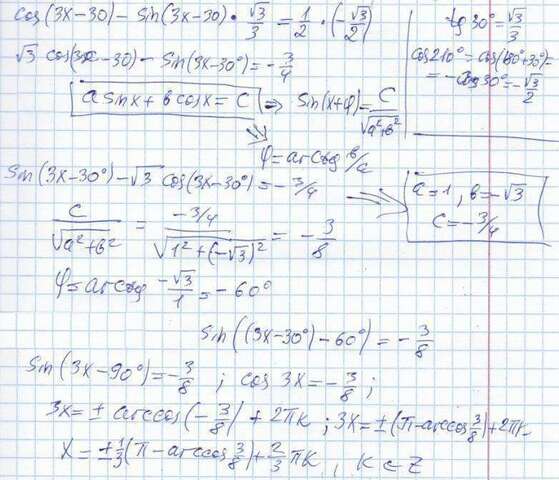 cos(3x-30)-sin(3x-30)·√3/3=1/2·(-√3/2)
tg30°=√3/3
√3 cos(3x-30)-sin(3x-30°)=-3/4
cos210°=cos(180°+30°)=
=-cos30°=-√3/2
a sinx+b cosx=C ⇒ sin(x+φ)=C/√(a²+b²)
φ=arctg b/a
sin(3x-30°)-√3 cos(3x-30°)=-3/4 ⇒
a=1, b=-√3
C=-3/4
C/√(a²+b²)=(-3/4)/√(1²+(-√3)²)=-3/8
φ=arctg -√3/1=-60°
sin((3x-30°)-60°)=-3/8
sin(3x-90°)=-3/8; cos3x=-3/8;
3x=± arccos(-3/8)+2πk; 3x=±(π-arccos 3/8)+2πk
x=±1/3(π-arccos 3/8)+2/3 πk, k∈Z